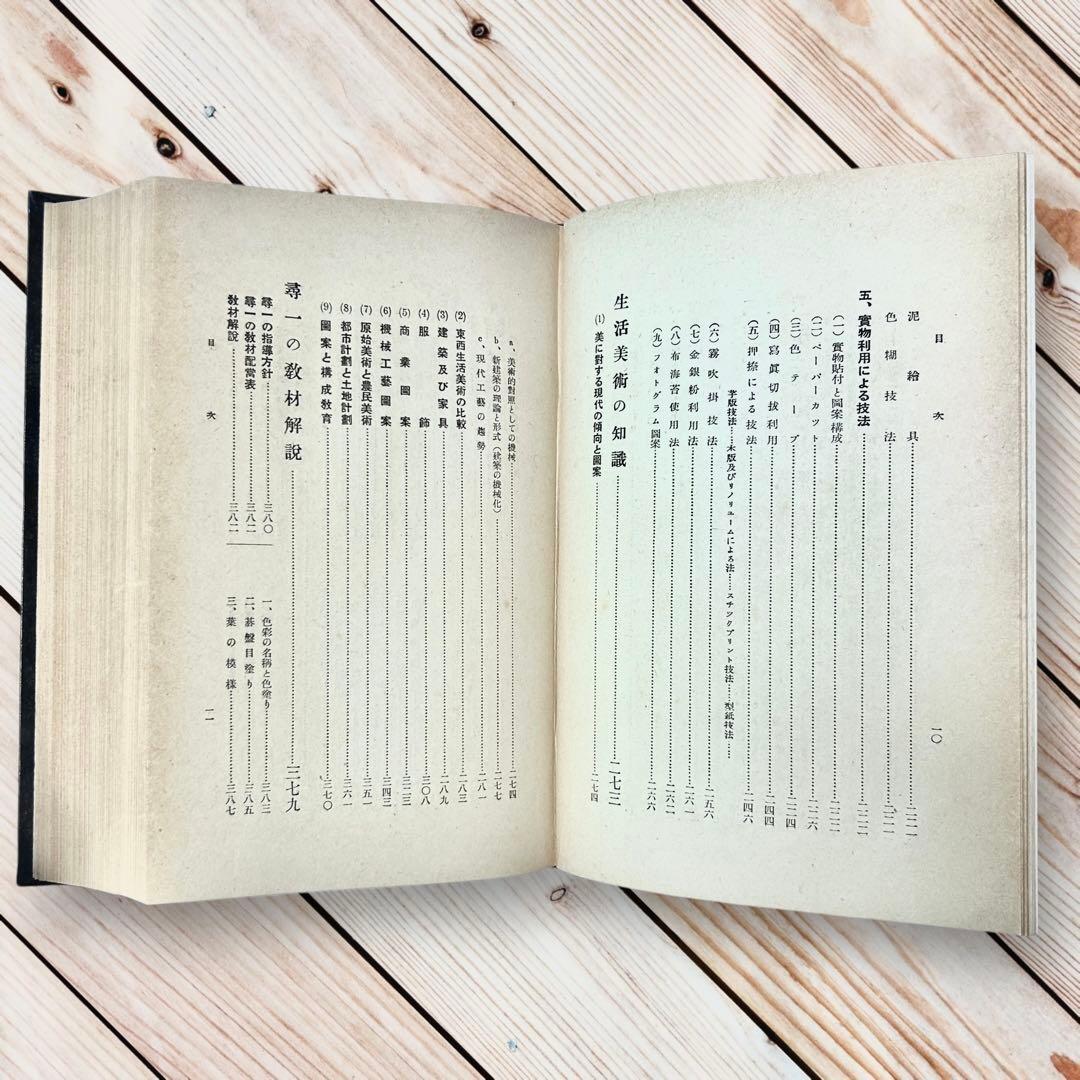 目次
一〇
泥絵具……二二一
色糊技法……二二一
五、實物利用による技法……二二二
(一)實物貼付と圖案構成……二二二
(二)ペーパーカット……二二六
(三)色テープ……二二四
(四)寫眞切拔利用……二四四
(五)押捺による技法……二四六
芋版技法……木版及びリノリユームによる法……スチンクプリント技法……型紙技法……
(六)霧吹掛技法……二五六
(七)金銀粉利用法……二六一
(八)布海苔使用法……二六二
(九)フオトグラム圖案……二六六
生活美術の知識……二七三
(1)美に對する現代の傾向と圖案……二七四
a、美術的對照としての機械……二七四
b、新建築の理論と形式(建築の機械化)……二七七
c、現代工藝の趨勢……二八一
(2)東西生活美術の比較……二八三
(3)建築及び家具……二八九
(4)服飾……三〇八
(5)商業圖案……三二三
(6)機械工藝圖案……三四三
(7)原始美術と農民美術……三五一
(8)都市計劃と土地計劃……三六一
(9)圖案と構成敎育……三七〇
尋一の敎材解說……三七九
尋一の指導方針……三八〇
尋一の敎材配當表……三八二
敎材解說……三八二
一、色彩の名稱と色塗り……三八三
二、碁盤目塗り……三八五
三、葉の模樣……三八七
目次
一一